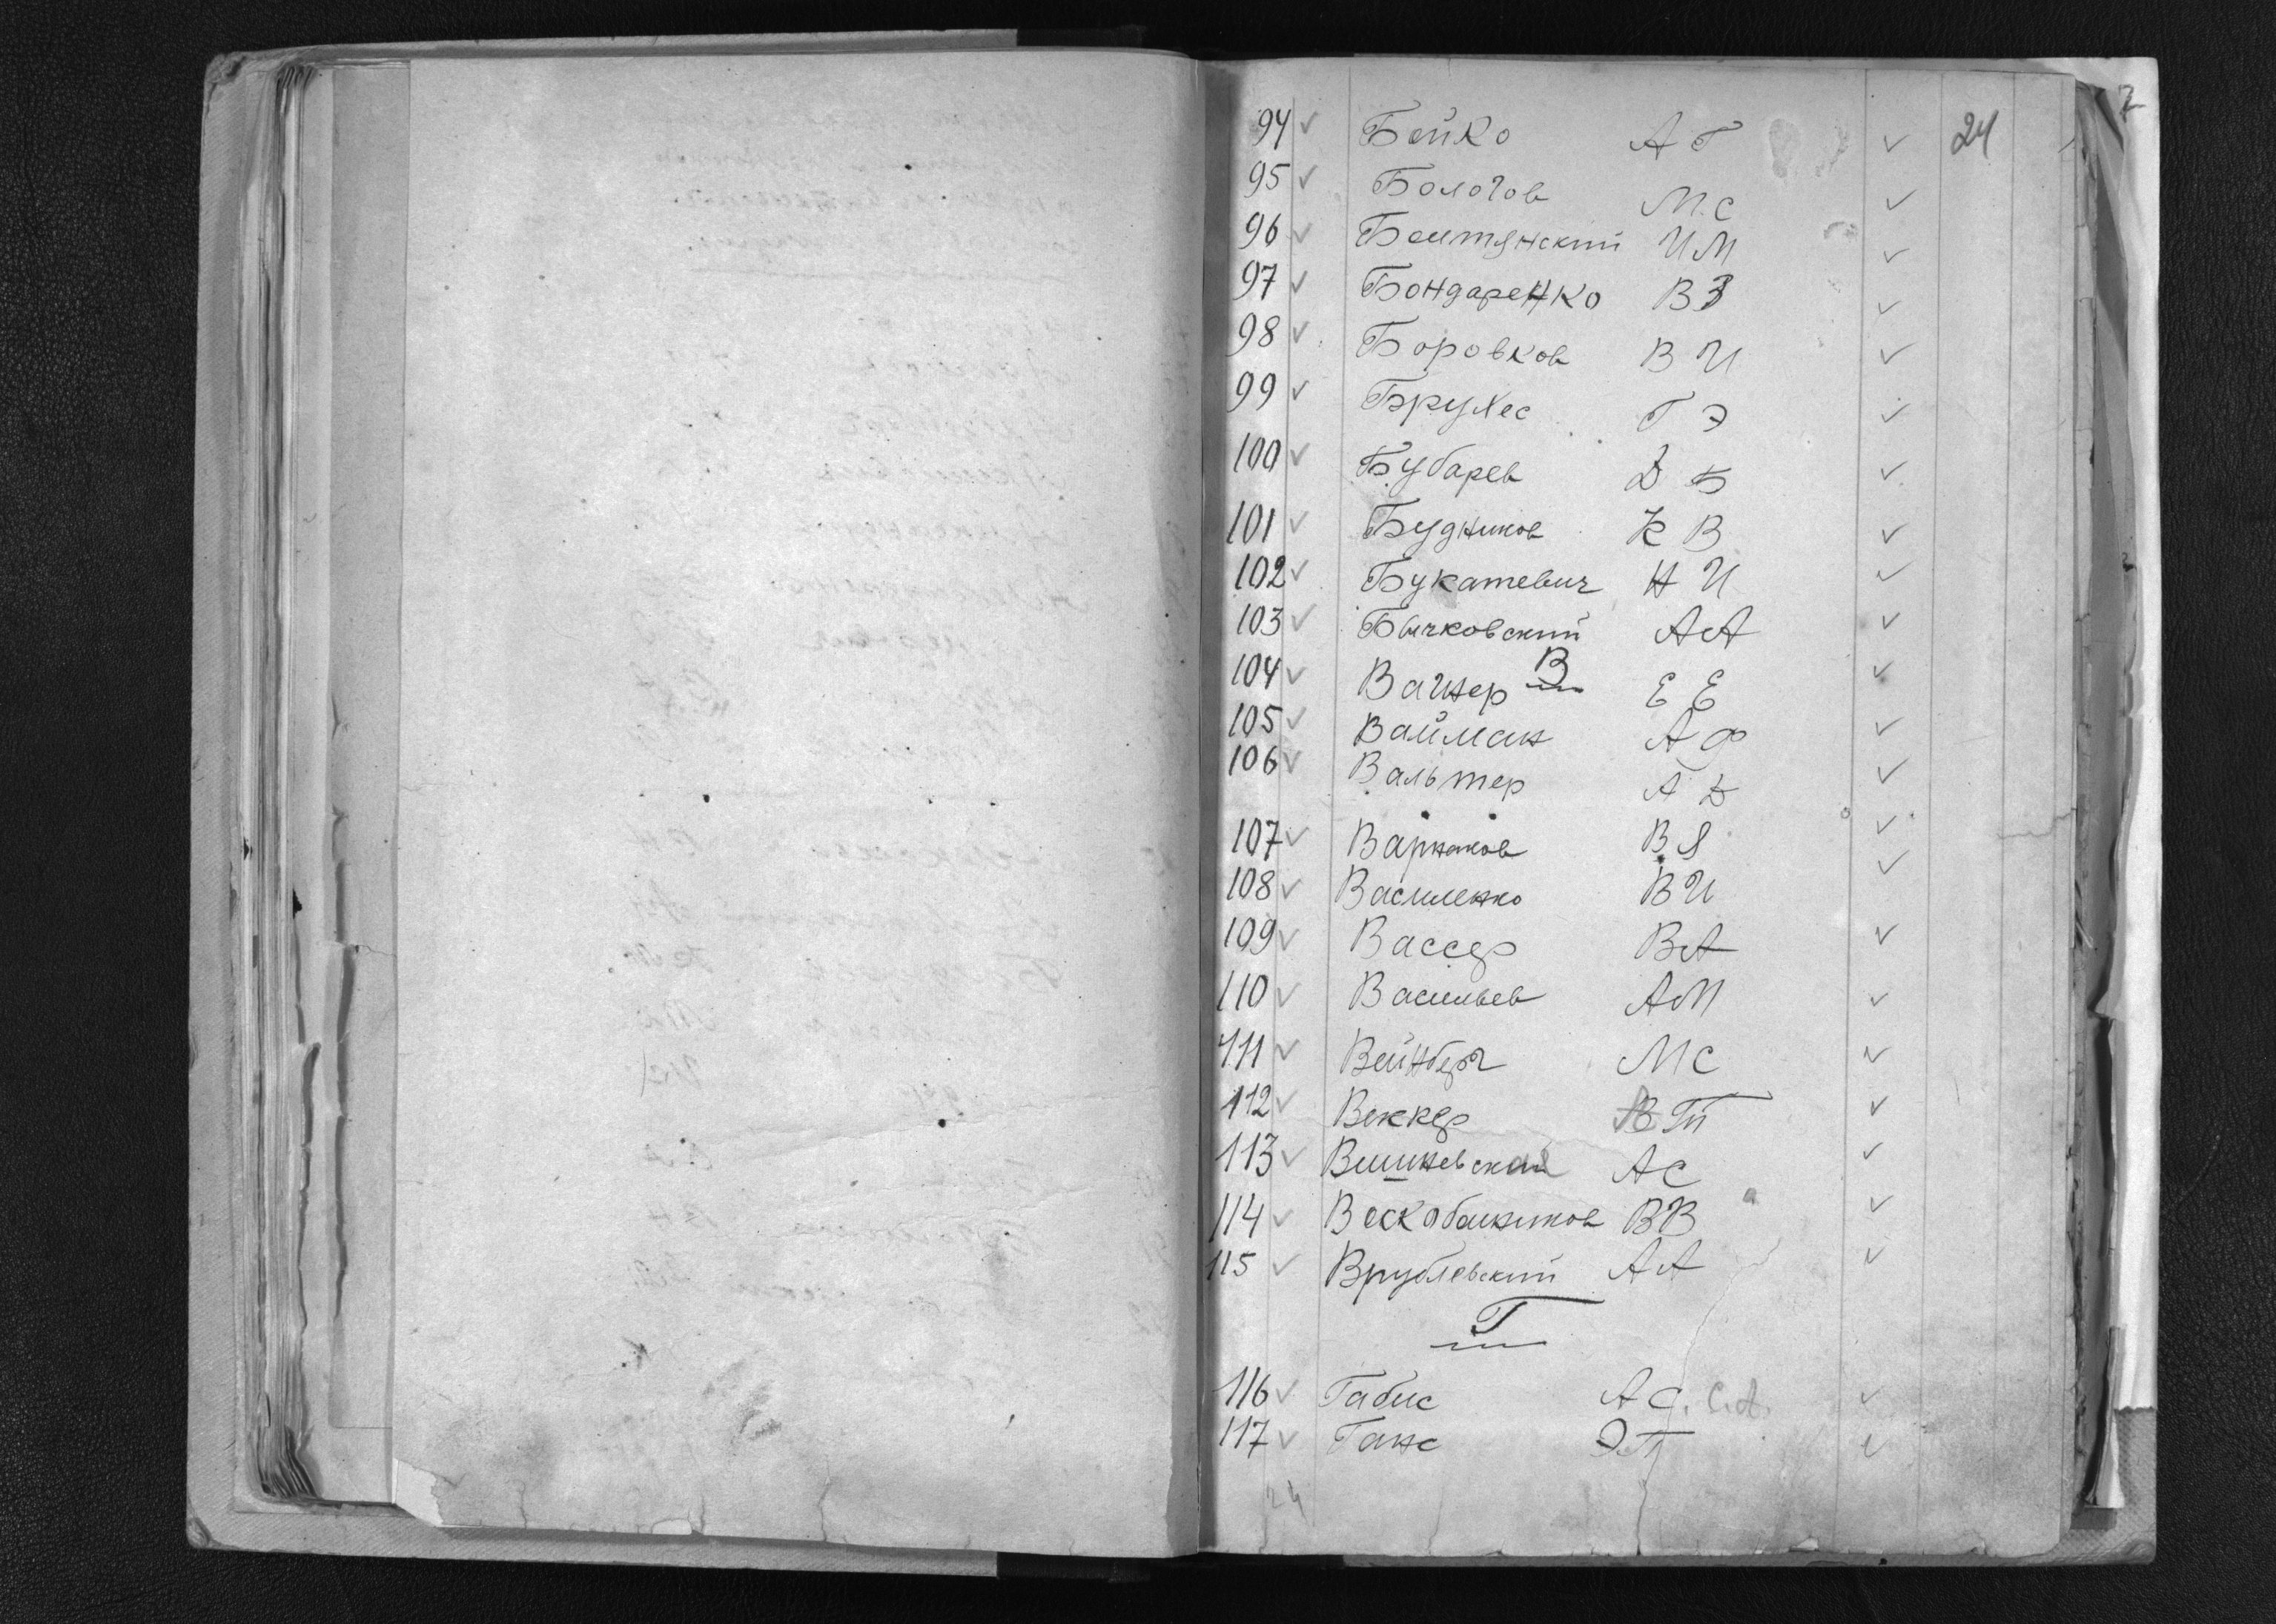 24
94 ✓ Бойко А Г ✓
95 ✓ Бологов М.С ✓
96 ✓ Болтянский И М ✓
97 ✓ Бондаренко В З ✓
98 ✓ Боровков В И ✓
99 ✓ Брухес Г Э ✓
100 ✓ Бубарев Д Б ✓
101 ✓ Будников К В ✓
102 ✓ Букатевич Н И ✓
103 ✓ Бычковский А А ✓
В
104 ✓ Вайнер Е Е ✓
105 ✓ Вайман А Ф ✓
106 ✓ Вальтер А Д ✓
107 ✓ Варнаков В Я ✓
108 ✓ Василенко В И ✓
109 ✓ Вассер В А ✓
110 ✓ Васильев А М ✓
111 ✓ Вейнберг М С ✓
112 ✓ Веккер П ✓
113 ✓ Вишневский А С ✓
114 ✓ Воскобойников В В ✓
115 ✓ Врублевский А А ✓
Г
116 ✓ Габис А С. С.А. ✓
117 ✓ Ганс Э.П ✓
24